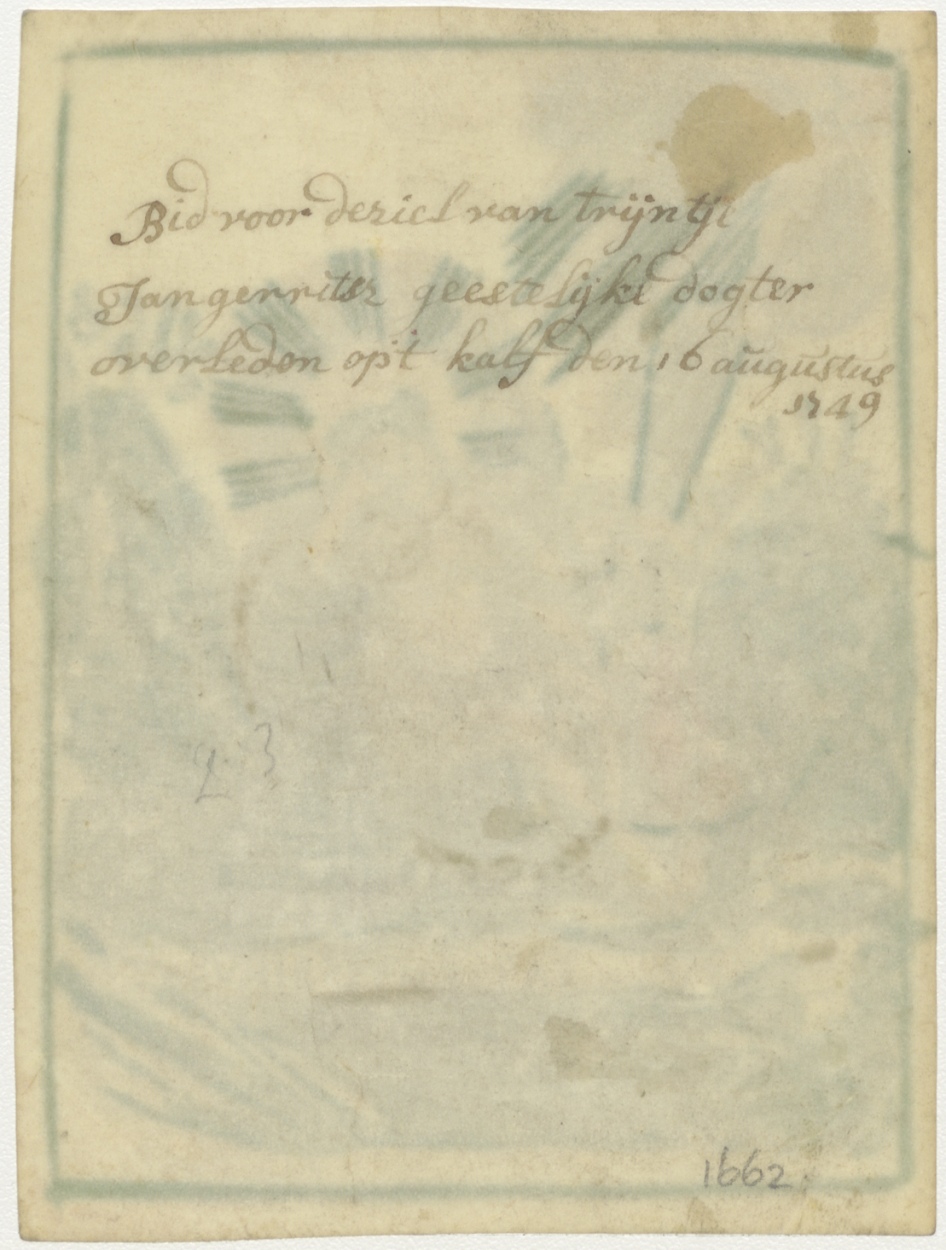 Bid voor deziel van trijntje
Jangerritsz geestelijke dogter
overleden op't kalf den 16 augustus
1749
2.3
1662.